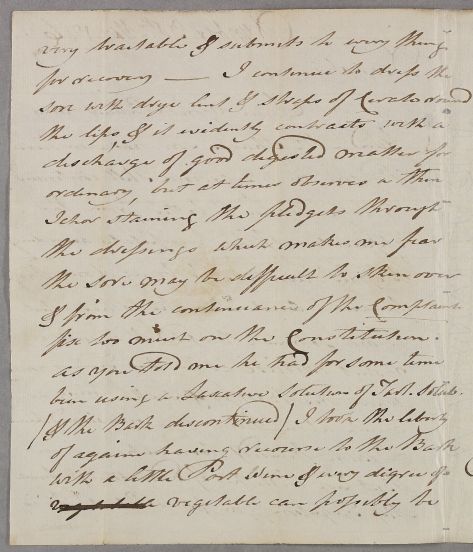 very tractable & submits to every thing
for recovery — I continue to dress the
sore with drye lint & straps of Cerate round
the lips, & it evidently contracts, with a
discharge of good digested matter for
ordinary, but at times observes a thin
Ichor staining the pledgets through
the dressings which makes me fear
the sore may be difficult to skin over
& from the continuance of the Complaint
fix too much on the Constitution.
as you told me he had for some time
been using a Laxative solution of Tart. Solub.
(& the Bark discontinued) I took the liberty
of again having recourse to the Bark
with a little Port Wine & every degree of
vegetable can possibly be